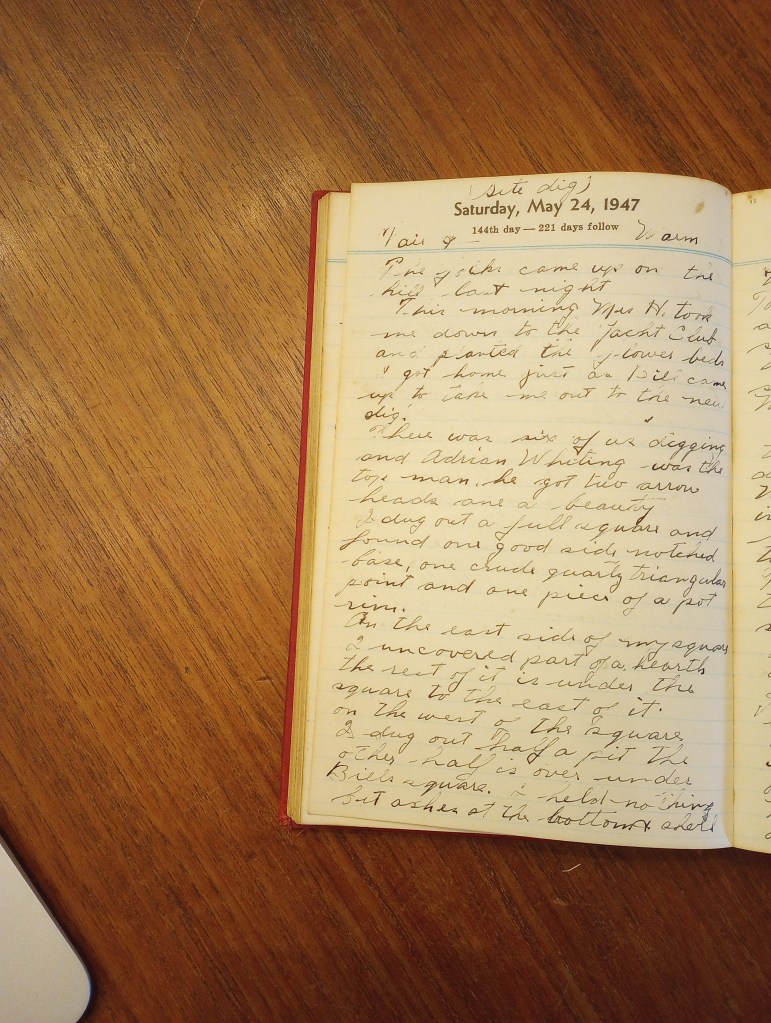 (site dig)
Saturday, May 24, 1947
144th day — 221 days follow
Fair & Warm
The folks came up on the
hill last night
This morning Mrs H. took
me down to the Yacht Club
and planted the flower beds
I got home just as Bill came
up to take me out to the new
dig.
There was six of us digging
and Adrian Whiting was the
top man. he got two arrow
heads one a beauty
I dug out a full square and
found one good side notched
base, one crude quartz triangular
point and one piece of a pot
rim.
On the east side of my square
I uncovered part of a hearth
the rest of it is under the
square to the east of it.
on the west of the square
I dug out half a pit the
other half is over under
Bills square. I held nothing
but ashes at the bottom &